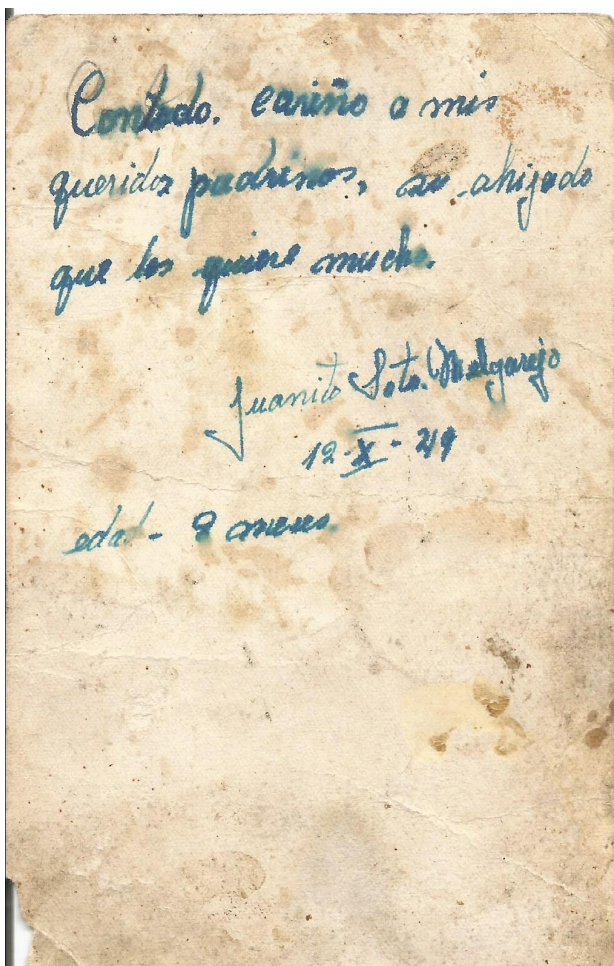 Contodo. cariño a mis
queridos padrinos, su ahijado
que los quiere mucho.
Juanito Soto. Melgarejo
12-X-49
edad - 8 meses.